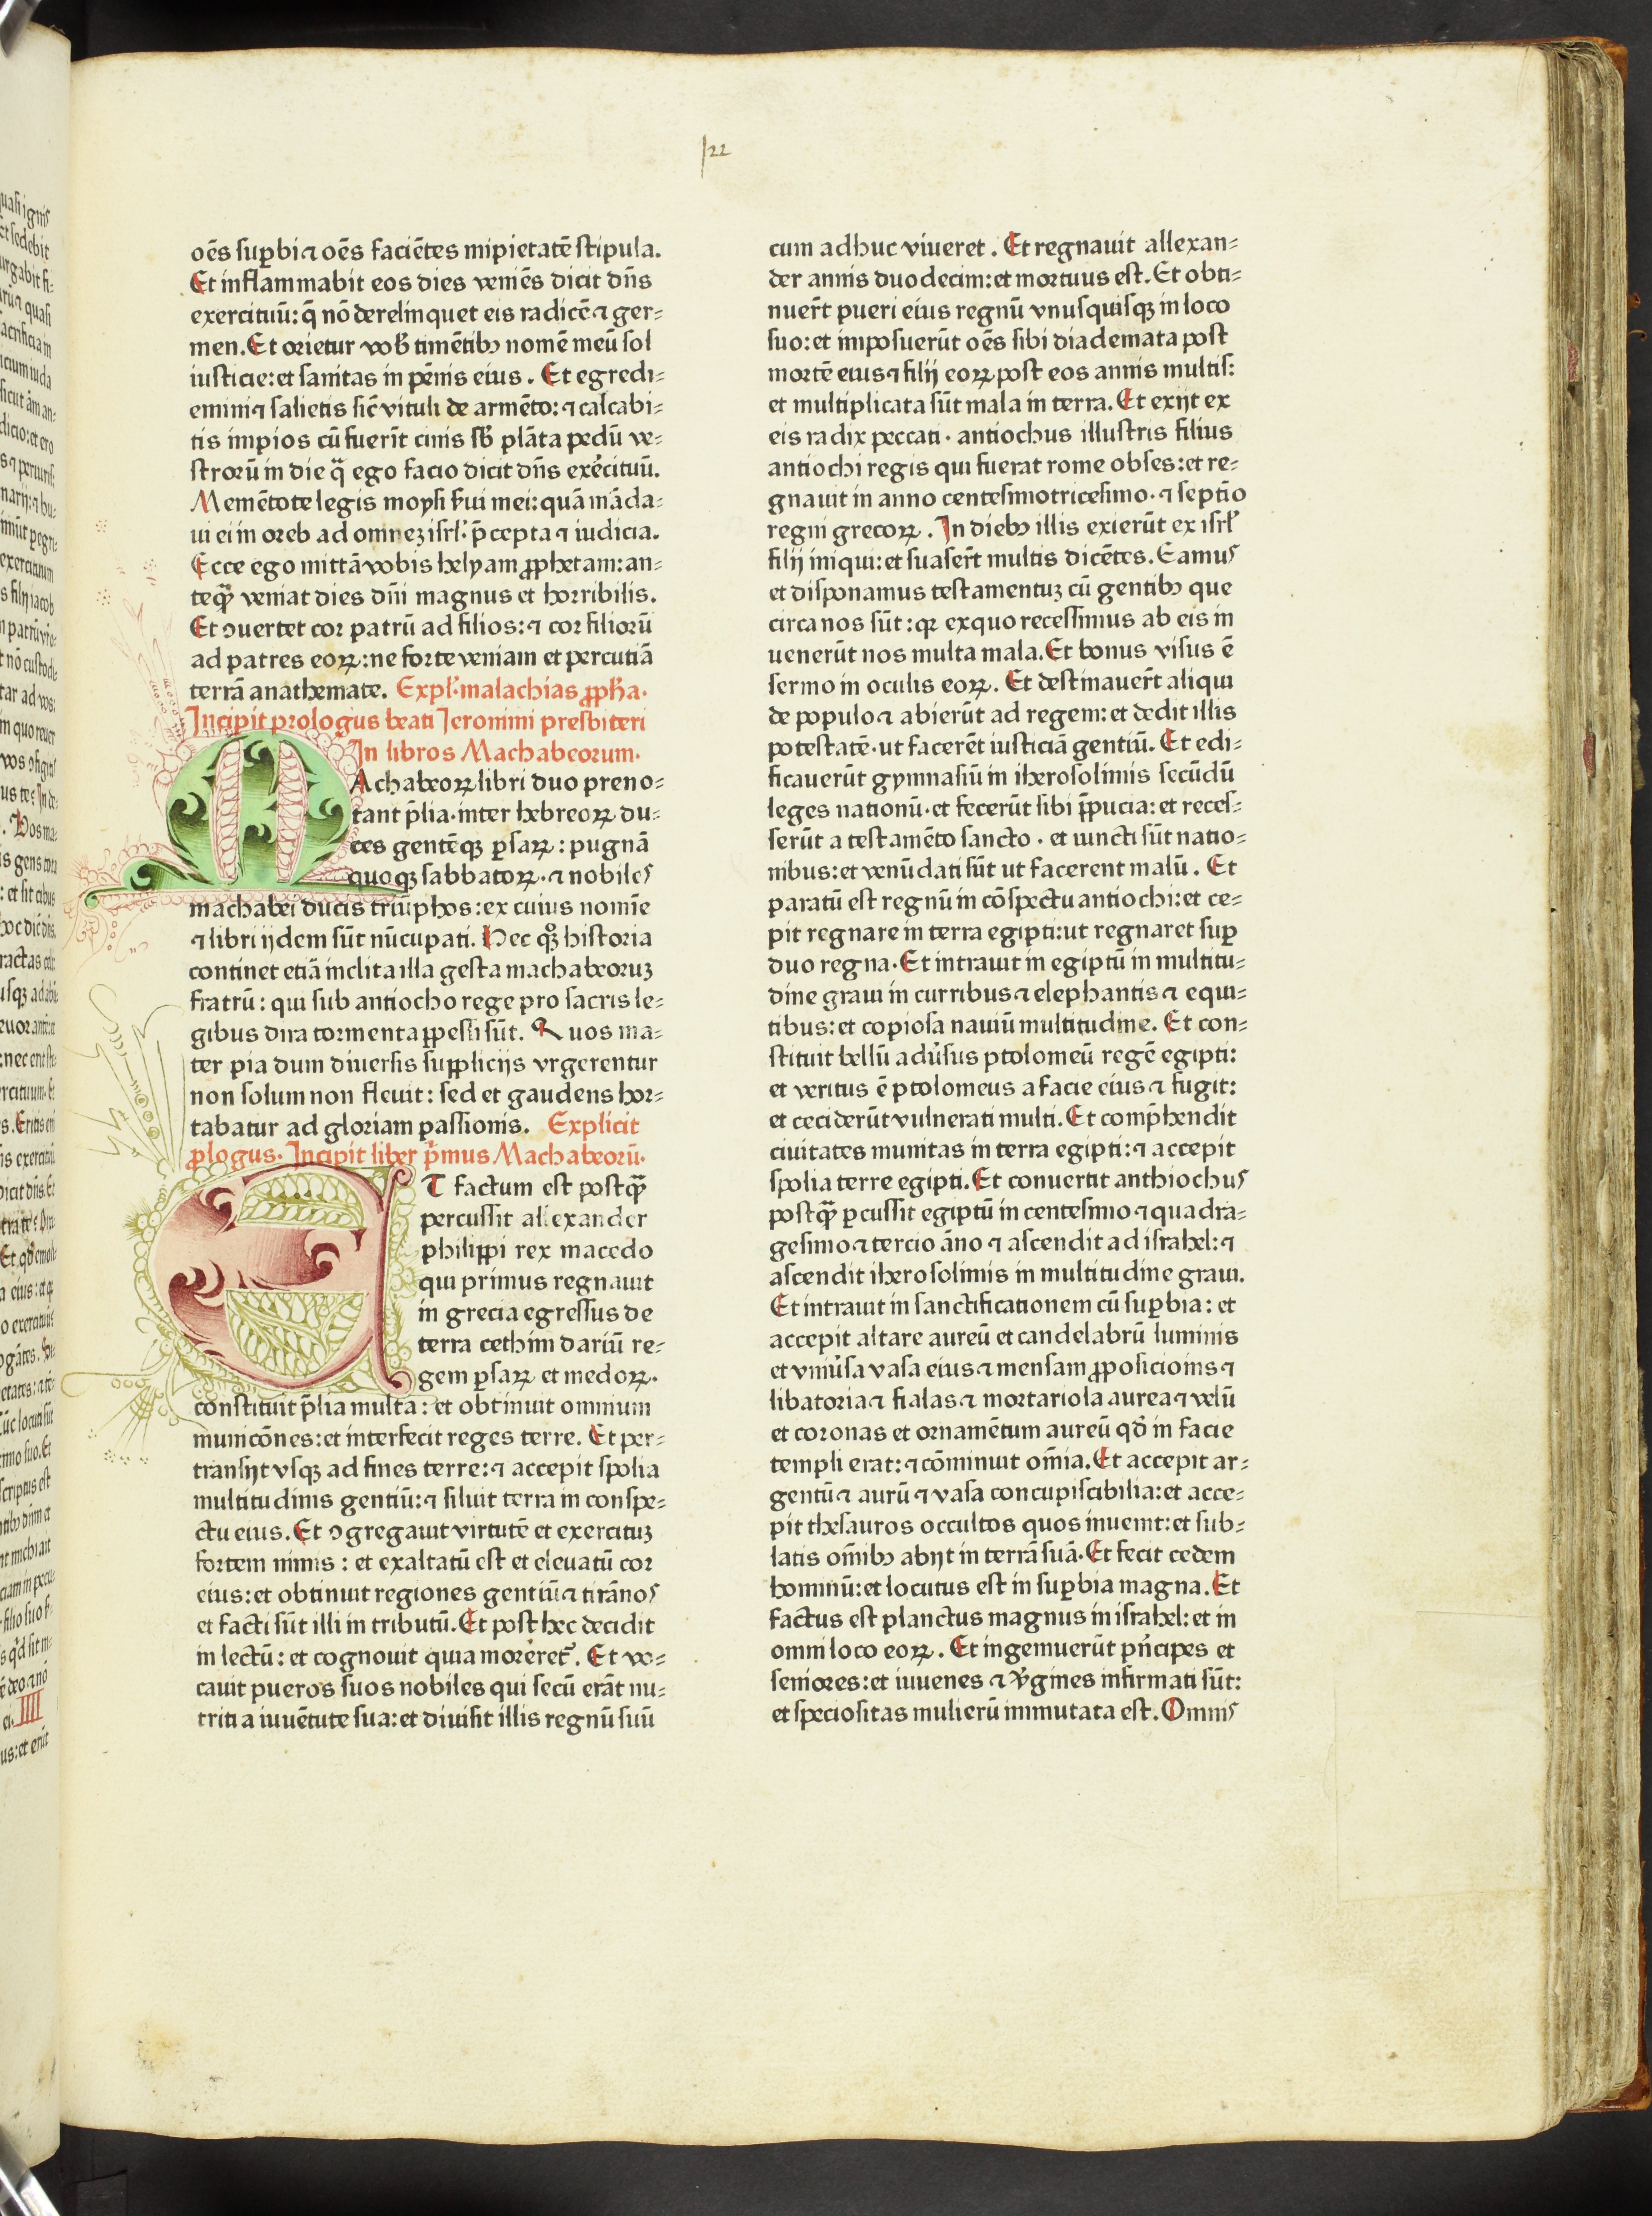 122
oēs suꝑbi ⁊ oēs faciētes mipietatē stipula.
Et inflammabit eos dies veniēs dicit dn̄s
exercituū: q̄ nō derelinquet eis radicē ⁊ ger=
men. Et orietur vob̄ timētibꝫ nomē meū sol
iusticie: et sanitas in pēnis eius. Et egredi=
emini ⁊ salietis sic̄ vituli de armēto: ⁊ calcabi=
tis impios cū fuerīt cinis sb̄ plāta pedū ve=
strorū in die q̄ ego facio dicit dn̄s exércituū.
Memētote legis moysi ẜui mei: quā māda=
ui ei in oreb ad omneꝫ isrl̓. p̄cepta ⁊ iudicia.
Ecce ego mittā vobis helyam ꝓphetam: an=
teq̄ȝ veniat dies dn̄i magnus et horribilis.
Et ↄuertet cor patrū ad filios: ⁊ cor filiorū
ad patres eoꝝ: ne forte veniam et percutiā
terrā anathemate. Expl̓. malachias ꝓph̄a.
Incipit prologus beati Ieronimi presbiteri
In libros Machabeorum.
MAchabeoꝝ libri duo preno=
tant p̄lia. inter hebreoꝝ du=
ces gentēqꝫ ꝑsaꝝ: pugnā
quoqꝫ sabbatoꝝ. ⁊ nobiles
machabei ducis triūphos: ex cuius nomīe
⁊ libri ijdem sūt nūcupati. Hec qͦꝫ historia
continet etiā inclita illa gesta machabeoruꝫ
fratrū: qui sub antiocho rege pro sacris le=
gibus dira tormenta ꝑpessi sūt. Quos ma=
ter pia dum diuersis supplicijs vrgerentur
non solum non fleuit: sed et gaudens hor=
tabatur ad gloriam passionis. Explicit
ꝓlogus. Incipit liber p̄mus Machabeorū.
ET factum est postq̄ȝ
percussit allexander
philippi rex macedo
qui primus regnauit
in grecia egressus de
terra cethim dariū re=
gem ꝑsaꝝ et medoꝝ.
constituit p̄lia multa: et obtinuit omnium
municōnes: et interfecit reges terre. Et per=
transijt vsqꝫ ad fines terre: ⁊ accepit spolia
multitudinis gentiū: ⁊ siluit terra in conspe=
ctu eius. Et ↄgregauit virtutē et exercituꝫ
fortem nimis: et exaltatū est et eleuatū cor
eius: et obtinuit regiones gentiū ⁊ tirānos
et facti sūt illi in tributū. Et post hec decidit
in lectū: et cognouit quia morereť. Et vo=
cauit pueros suos nobiles qui secū erāt nu=
triti a iuuētute sua: et diuisit illis regnū suū
cum adhuc viueret. Et regnauit allexan=
der annis duodecim: et mortuus est. Et obti=
nuer̄t pueri eius regnū vnusquisqꝫ in loco
suo: et imposuerūt oēs sibi diademata post
mortē eius ⁊ filij eoꝝ post eos annis multis:
et multiplicata sūt mala in terra. Et exijt ex
eis radix peccati. antiochus illustris filius
antiochi regis qui fuerat rome obses: et re=
gnauit in anno centesimotricesimo. ⁊ septīo
regni grecoꝝ. In diebꝫ illis exierūt ex isrl̓
filij iniqui: et suaser̄t multis dicētes. Eamus
et disponamus testamentuꝫ cū gentibꝫ que
circa nos sūt: qꝛ exquo recessimus ab eis in
uenerūt nos multa mala. Et bonus visus ē
sermo in oculis eoꝝ. Et destinauer̄t aliqui
de populo ⁊ abierūt ad regem: et dedit illis
potestatē. ut facerēt iusticiā gentiū. Et edi=
ficauerūt gymnasiū in iherosolimis secūdū
leges nationū. et fecerūt sibi p̄pucia: et reces=
serūt a testamēto sancto. et iuncti sūt natio=
nibus: et venūdati sūt ut facerent malū. Et
paratū est regnū in cōspectu antiochi: et ce=
pit regnare in terra egipti: ut regnaret suꝑ
duo regna. Et intrauit in egiptū in multitu=
dine graui in curribus ⁊ elephantis ⁊ equi=
tibus: et copiosa nauiū multitudine. Et con=
stituit bellū adu̓sus ptolomeū regē egipti:
et veritus ē ptolomeus a facie eius ⁊ fugit:
et ceciderūt vulnerati multi. Et comp̄hendit
ciuitates munitas in terra egipti: ⁊ accepit
spolia terre egipti. Et conuertit anthiochus
postq̄ȝ ꝑcussit egiptū in centesimo ⁊ quadra=
gesimo ⁊ tercio āno ⁊ ascendit ad israhel: ⁊
ascendit iherosolimis in multitudine graui.
Et intrauit in sanctificationem cū suꝑbia: et
accepit altare aureū et candelabrū luminis
et vniu̓sa vasa eius ⁊ mensam ꝓposicionis ⁊
libatoria ⁊ fialas ⁊ mortariola aurea ⁊ velū
et coronas et ornamētum aureū qd̓ in facie
templi erat: ⁊ cōminuit om̄ia. Et accepit ar=
gentū ⁊ aurū ⁊ vasa concupiscibilia: et acce=
pit thesauros occultos quos inuenit: et sub=
latis om̄ibꝫ abijt in terrā suā. Et fecit cedem
hominū: et locutus est in suꝑbia magna. Et
factus est planctus magnus in israhel: et in
omni loco eoꝝ. Et ingemuerūt pn̓cipes et
seniores: et iuuenes ⁊ v̓gines infirmati sūt:
et speciositas mulierū immutata est. Omnis